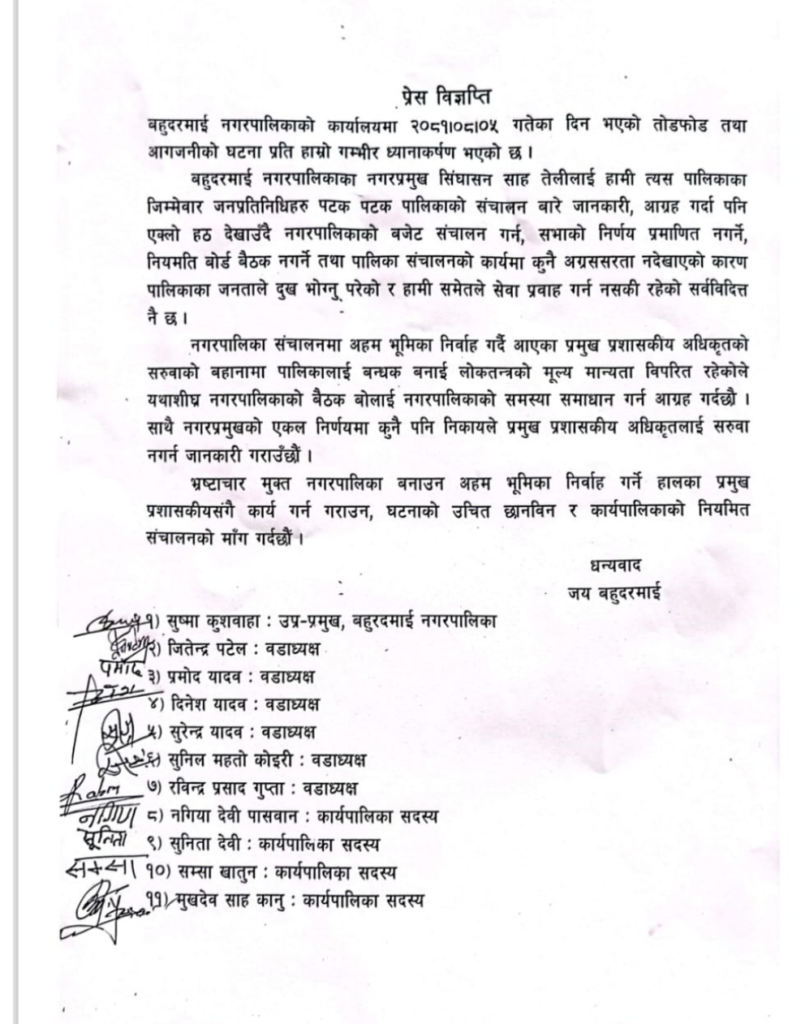 प्रेस विज्ञप्ति
बहुदरमाई नगरपालिकाको कार्यालयमा २०८१।०८।०५ गतेका दिन भएको तोडफोड तथा
आगजनीको घटना प्रति हाम्रो गम्भीर ध्यानाकर्षण भएको छ ।
बहुदरमाई नगरपालिकाका नगरप्रमुख सिंघासन साह तेलीलाई हामी त्यस पालिकाका
जिम्मेवार जनप्रतिनिधिहरु पटक पटक पालिकाको संचालन बारे जानकारी, आग्रह गर्दा पनि
एक्लो हठ देखाउँदै नगरपालिकाको बजेट संचालन गर्न, सभाको निर्णय प्रमाणित नगर्ने,
नियमति बोर्ड बैठक नगर्ने तथा पालिका संचालनको कार्यमा कुनै अग्रससरता नदेखाएको कारण
पालिकाका जनताले दुख भोग्नु परेको र हामी समेतले सेवा प्रवाह गर्न नसकी रहेको सर्वविदित्त
नै छ ।
नगरपालिका संचालनमा अहम भूमिका निर्वाह गर्दै आएका प्रमुख प्रशासकीय अधिकृतको
सरुवाको बहानामा पालिकालाई बन्धक बनाई लोकतन्त्रको मूल्य मान्यता विपरित रहेकोले
यथाशीघ्र नगरपालिकाको बैठक बोलाई नगरपालिकाको समस्या समाधान गर्न आग्रह गर्दछौ ।
साथै नगरप्रमुखको एकल निर्णयमा कुनै पनि निकायले प्रमुख प्रशासकीय अधिकृतलाई सरुवा
नगर्न जानकारी गराउँछौं ।
भ्रष्टाचार मुक्त नगरपालिका बनाउन अहम भूमिका निर्वाह गर्ने हालका प्रमुख
प्रशासकीयसंगै कार्य गर्न गराउन, घटनाको उचित छानविन र कार्यपालिकाको नियमित
संचालनको माँग गर्दछौं ।
धन्यवाद
जय बहुदरमाई
१) सुष्मा कुशवाहा : उप्र-प्रमुख, बहुरदमाई नगरपालिका
२) जितेन्द्र पटेल : वडाध्यक्ष
प्रमोद ३) प्रमोद यादव : वडाध्यक्ष
४) दिनेश यादव : वडाध्यक्ष
५) सुरेन्द्र यादव : वडाध्यक्ष
६) सुनिल महतो कोइरी : वडाध्यक्ष
७) रविन्द्र प्रसाद गुप्ता : वडाध्यक्ष
८) नगिया देवी पासवान : कार्यपालिका सदस्य
सूनिता ९) सुनिता देवी : कार्यपालिका सदस्य
१०) सम्सा खातुन : कार्यपालिका सदस्य
११) मुखदेव साह कानु : कार्यपालिका सदस्य